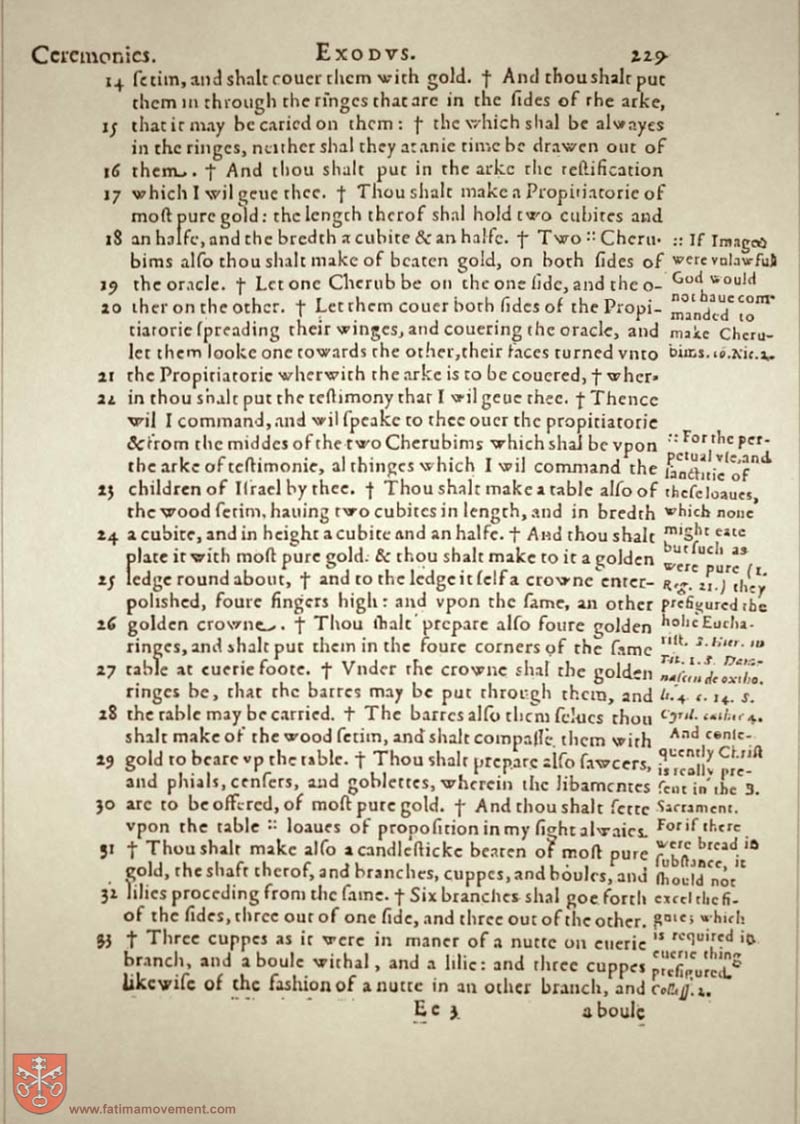 Ceremonies. EXODVS. 229
14 ſetim, and shalt couer them with gold. † And thou shalt put
them in through the ringes that are in the ſides of the arke,
15 that it may be caried on them: † the which shal be alwayes
in the ringes, neither shal they at anie time be drawen out of
16 them. † And thou shalt put in the arke the teſtification
17 which I wil geue thee. † Thou shalt make a Propitiatorie of
moſt pure gold: the length therof shal hold two cubites and
18 an halfe, and the bredth a cubite & an halfe. † Two :: Cheru-
bims alſo thou shalt make of beaten gold, on both ſides of
19 the oracle. † Let one Cherub be on the one ſide, and the o-
20 ther on the other. † Let them couer both ſides of the Propi-
tiatorie ſpreading their winges, and couering the oracle, and
let them looke one towards the other, their faces turned vnto
21 the Propitiatorie wherwith the arke is to be couered, † wher-
22 in thou shalt put the teſtimony that I wil geue thee. † Thence
wil I command, and wil ſpeake to thee ouer the propitiatorie
& from the middes of the two Cherubims which shal be vpon
the arke of teſtimonie, al thinges which I wil command the
23 children of Iſrael by thee. † Thou shalt make a table alſo of
the wood ſetim, hauing two cubites in length, and in bredth
24 a cubite, and in height a cubite and an halfe. † And thou shalt
plate it with moſt pure gold: & thou shalt make to it a golden
25 ledge round about, † and to the ledge it ſelf a crowne enter-
polished, foure fingers high: and vpon the ſame, an other
26 golden crowne. † Thou shalt prepare alſo foure golden
ringes, and shalt put them in the foure corners of the ſame
27 table at euerie foote. † Vnder the crowne shal the golden
ringes be, that the barres may be put through them, and
28 the table may be carried. † The barres alſo them ſelues thou
shalt make of the wood ſetim, and shalt compaſſe them with
29 gold to beare vp the table. † Thou shalt prepare alſo ſawcers,
and phials, cenſers, and goblettes, wherein the libamentes
30 are to be offered, of moſt pure gold. † And thou shalt ſette
vpon the table :: loaues of propoſition in my ſight alwaies.
31 † Thou shalt make alſo a candleſticke beaten of moſt pure
gold, the shaft therof, and branches, cuppes, and boules, and
32 lilies proceding from the ſame. † Six branches shal goe forth
of the ſides, three out of one ſide, and three out of the other.
33 † Three cuppes as it were in maner of a nutte on euerie
branch, and a boule withal, and a lilie: and three cuppes
likewiſe of the fashion of a nutte in an other branch, and
Ee 3 a boule
:: If Images
were vnlawful
God would
not haue com-
manded to
make Cheru-
bims. 10. Nic. 2.
:: For the per-
petual vſe, and
ſanctitie of
theſe loaues,
which none
might eate
but ſuch as
were pure (1.
Reg. 21.) they
prefigured the
holie Eucha-
riſt. S. Hier. in
Tit. 1. S. Dama-
li. 4. c. 14. S.
Cyril. cathec 4.
And conſe-
quently Chriſt
is really pre-
ſent in the B.
Sacrament.
For if there
were bread in
ſubſtance, it
should not
excel the fi-
gure; which
is required in
euerie thing
prefigured.
Coloſſ. 2.
www.fatimamovement.com